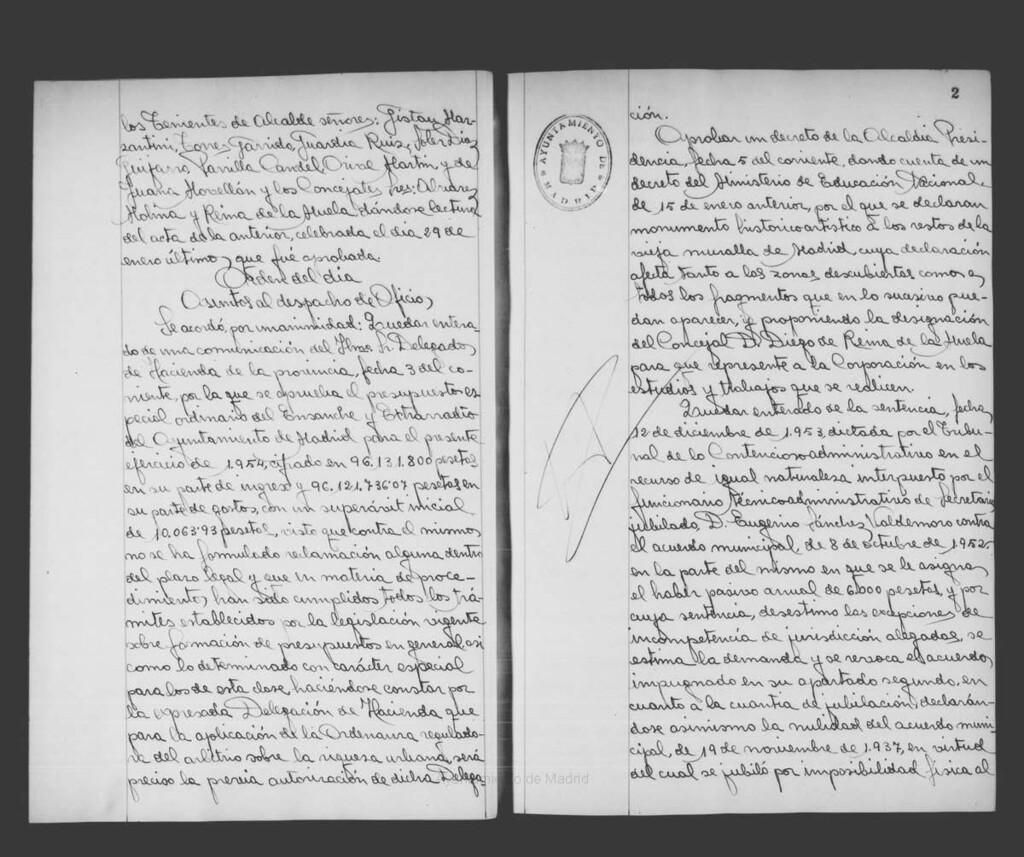 los Tenientes de Alcalde señores: Gistau Mar-
zantini, Torres Garrido, Guardia Ruiz, Soler Diaz
Guijarro Parrilla Candel, Orive Martin, y de
Juana Morcellón y los Concejales, sres: Alvarez
Molina y Reina de la Huela dándose lectura
del acta de la anterior, celebrada el dia 29 de
enero último, que fué aprobada.
Orden del dia
Asuntos al despacho de Oficio,
Se acordó, por unanimidad: Quedar entera-
do de una comunicación del Ilmo. Sr. Delegado
de Hacienda de la provincia, fecha 3 del co-
rriente, por la que se aprueba el presupuesto es-
pecial ordinario del Ensanche y Extrarradio
del Ayuntamiento de Madrid para el presente
ejercicio de 1.954, cifrado en 96.131.800 pesetas
en su parte de ingreso y 96.121.736'07 pesetas en
su parte de gastos, con un superávit inicial
de 10.063'93 pesetas, visto que contra el mismo
no se ha formulado reclamación alguna dentro
del plazo legal y que en materia de proce-
dimiento, han sido cumplidos todos los trá-
mites establecidos por la legislación vigente
sobre formación de presupuestos en general, asi
como lo determinado con carácter especial
para los de esta clase, haciéndose constar por
la expresada Delegación de Hacienda que
para la aplicación de la Ordenanza regulado-
ra del arbitrio sobre la riqueza urbana, será
preciso la previa autorización de dicha Delega-
2
AYUNTAMIENTO DE MADRID
ción.
Aprobar un decreto de la Alcaldia Presi-
dencia, fecha 5 del corriente, dando cuenta de un
decreto del Ministerio de Educación Nacional,
de 15 de enero anterior, por el que se declaran
monumento historicoartistico a los restos de la
vieja muralla de Madrid, cuya declaración
afecta tanto a las zonas descubiertas como a
todos los fragmentos que en lo sucesivo pue-
dan aparecer, y proponiendo la designación
del Concejal D. Diego de Reina de la Huela
para que represente a la Corporación en los
estudios y trabajos que se realicen.
Quedar enterado de la sentencia, fecha
12 de diciembre de 1.953, dictada por el Tribu-
nal de lo Contenciosoadministrativo en el
recurso de igual naturalesa interpuesto por el
funcionario técnicoadministrativo de Secretaria
jubilado, D. Eugenio Sánchez Valdemoro contra
el acuerdo municipal, de 8 de octubre de 1952.
en la parte del mismo en que se le asigna
el haber pasivo anual de 6.000 pesetas, y por
cuya sentencia, desestimo las excepciones de
incompetencia de jurisdicción alegadas, se
estima la demanda y se revoca el acuerdo,
impugnado en su apartado segundo, en
cuanto a la cuantia de jubilación, declarán-
dose asimismo la nulidad del acuerdo muni-
cipal, de 19 de noviembre de 1.937, en virtud
del cual se jubiló por imposibilidad fisica al
Ayuntamiento de Madrid